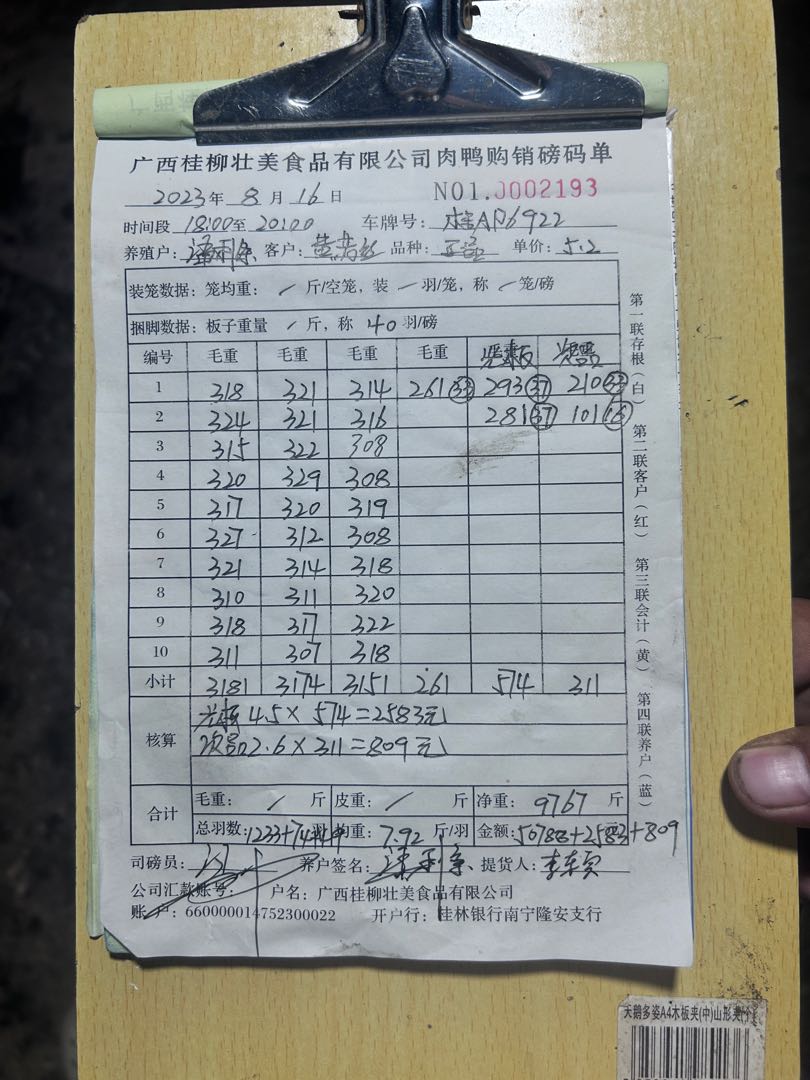 广西桂柳壮美食品有限公司肉鸭购销磅码单
2023年 8 月 16 日 NO1.0002193
时间段 18:00至 20:00 车牌号: 桂AD6922
养殖户: 客户: 品种: 单价: 5.2
装笼数据: 笼均重: / 斤/空笼, 装 / 羽/笼, 称 / 笼/磅
捆脚数据: 板子重量 / 斤, 称 40 羽/磅
编号 毛重 毛重 毛重 毛重
1 318 321 314 261(33) 293(37) 210(33)
2 324 321 316 281(37) 101(16)
3 315 322 308
4 320 329 308
5 317 320 319
6 327 312 308
7 321 314 318
8 310 311 320
9 318 317 322
10 311 307 318
小计 3181 3174 3151 261 574 311
核算
光板 4.5×574=2583元
次品2.6×311=809元
合计
毛重: / 斤 皮重: / 斤 净重: 9767 斤
总羽数: 1233+74+49 均重: 7.92 斤/羽 金额: 50788+2583+809
司磅员: 养户签名: 提货人:
公司汇款账号: 户名: 广西桂柳壮美食品有限公司
账 户: 660000014752300022 开户行: 桂林银行南宁隆安支行
第一联存根(白) 第二联客户(红) 第三联会计(黄) 第四联养户(蓝)
天鹅多姿A4木板夹(中)山形夹(个)